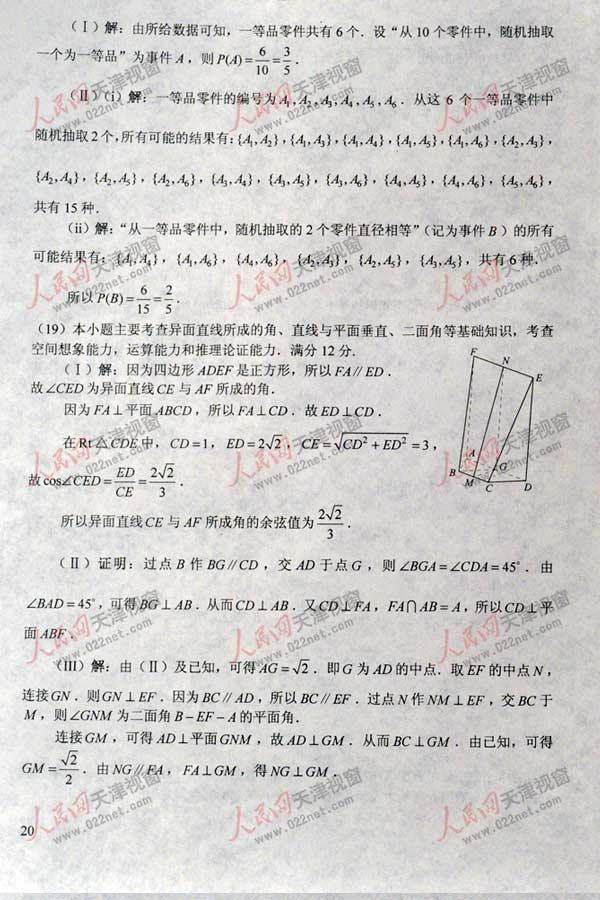 (Ⅰ)解:由所给数据可知,一等品零件共有6个.设“从10个零件中,随机抽取
一个为一等品”为事件A,则P(A)=6/10=3/5.
(Ⅱ)(i)解:一等品零件的编号为A₁,A₂,A₃,A₄,A₅,A₆.从这6个一等品零件中
随机抽取2个,所有可能的结果有:{A₁,A₂},{A₁,A₃},{A₁,A₄},{A₁,A₅},{A₁,A₆},{A₂,A₃},
{A₂,A₄},{A₂,A₅},{A₂,A₆},{A₃,A₄},{A₃,A₅},{A₃,A₆},{A₄,A₅},{A₄,A₆},{A₅,A₆},
共有15种.
(ii)解:“从一等品零件中,随机抽取的2个零件直径相等”(记为事件B)的所有
可能结果有:{A₁,A₄},{A₁,A₆},{A₄,A₆},{A₂,A₃},{A₂,A₅},{A₃,A₅},共有6种.
所以P(B)=6/15=2/5.
(19)本小题主要考查异面直线所成的角、直线与平面垂直、二面角等基础知识,考查
空间想象能力,运算能力和推理论证能力.满分12分.
(Ⅰ)解:因为四边形ADEF是正方形,所以FA∥ED.
故∠CED为异面直线CE与AF所成的角.
因为FA⊥平面ABCD,所以FA⊥CD.故ED⊥CD.
在Rt△CDE中,CD=1,ED=2√2,CE=√(CD²+ED²)=3,
故cos∠CED=ED/CE=2√2/3.
所以异面直线CE与AF所成角的余弦值为2√2/3.
F
N
E
A
G
B
M
C
D
(Ⅱ)证明:过点B作BG∥CD,交AD于点G,则∠BGA=∠CDA=45°.由
∠BAD=45°,可得BG⊥AB.从而CD⊥AB.又CD⊥FA,FA∩AB=A,所以CD⊥平
面ABF.
(Ⅲ)解:由(Ⅱ)及已知,可得AG=√2.即G为AD的中点.取EF的中点N,
连接GN.则GN⊥EF.因为BC∥AD,所以BC∥EF.过点N作NM⊥EF,交BC于
M,则∠GNM为二面角B-EF-A的平面角.
连接GM,可得AD⊥平面GNM,故AD⊥GM.从而BC⊥GM.由已知,可得
GM=√2/2.由NG∥FA,FA⊥GM,得NG⊥GM.
20
人民网天津视窗
www.022net.com